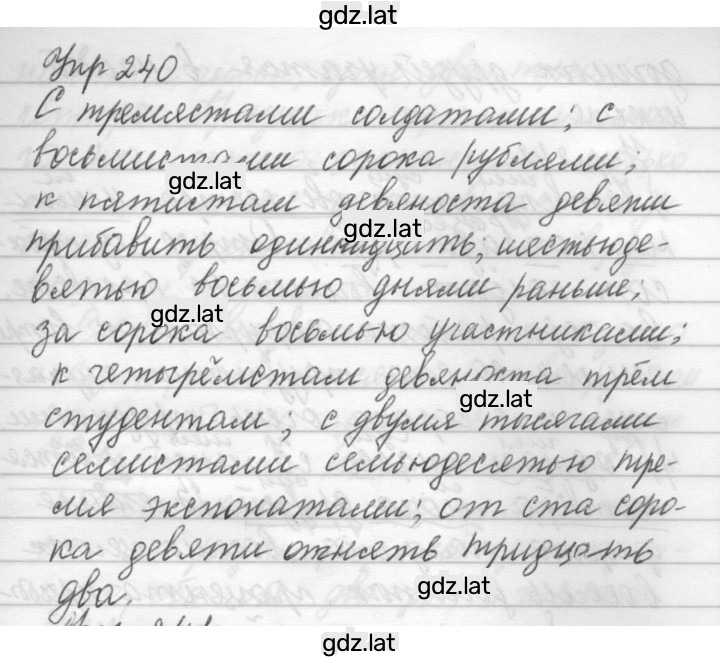 gdz.lat
Упр 240
С тремястами солдатами; с
восьмистами сорока рублями;
gdz.lat
к пятистам девяноста девяти
gdz.lat
прибавить одиннадцать, шестьюде-
вятью восьмью днями раньше;
gdz.lat
за сорока восьмью участниками;
к четырёмстам девяноста трём
gdz.lat
студентам; с двумя тысячами
семистами семьюдесятью тре-
мя экспонатами; от ста соро-
ка девяти отнять тридцать
gdz.lat
два.
gdz.lat